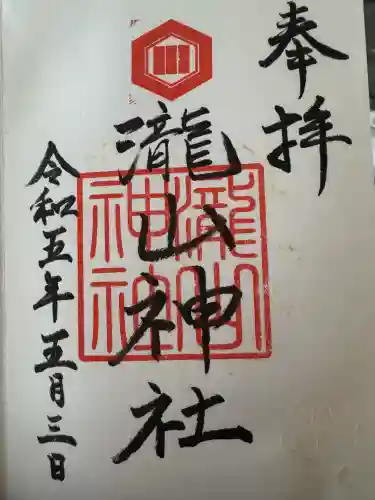 奉拝
瀧山神社
瀧山神社
令和五年五月三日